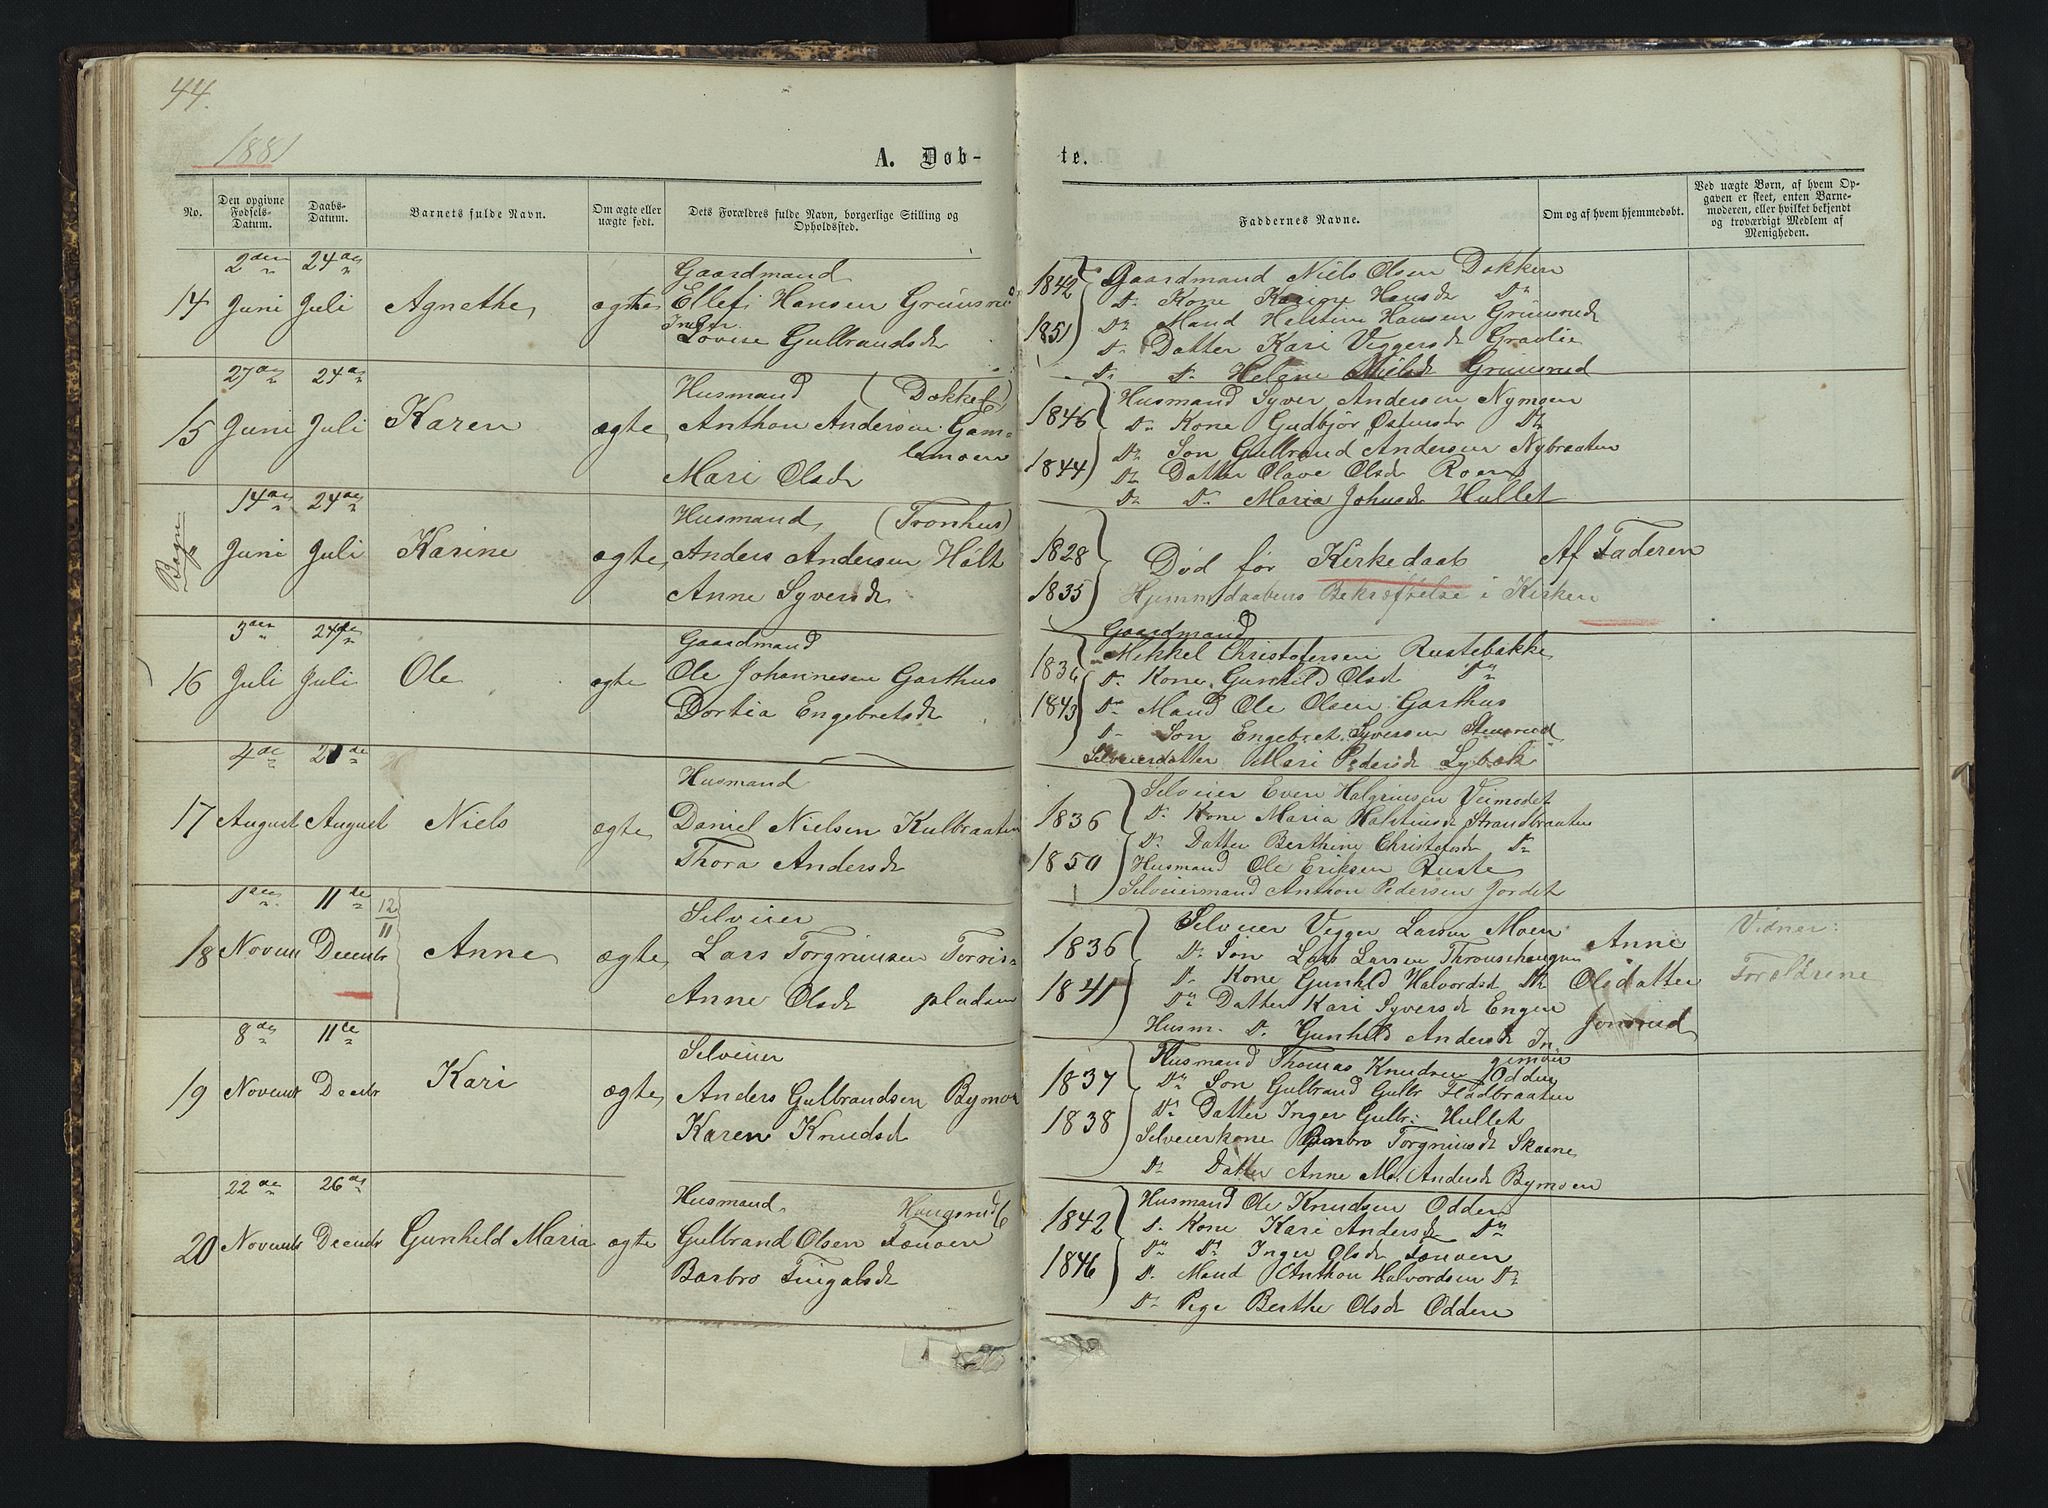 44.
1881
A. Døb-
te.
No.
Den opgivne Fødsels-Datum.
Daabs-Datum.
Barnets fulde Navn.
Om ægte eller uægte født.
Dets Forældres fulde Navn, borgerlige Stilling og Opholdssted.
Faddernes Navne.
Om og af hvem hjemmedøbt.
Ved uægte Børn, af hvem Opgaven er skeet, enten Barnemoderen, eller hvilket bekjendt og troværdigt Medlem af Menigheden.
14
2den Juni
24de Juli
Agnethe
ægte
Gaardmand
Ellef Hansen Grimsrud
Inger
Lovise Gulbrandsdr
1842
1851
Gaardmand Niels Olsen Dokken
Do Kone Karine Hansdr Do
Do Mand Halstein Hansen Grimsrud
Do Datter Kari Viggersdr Gravlie
Do Do Helene Nielsdr Grimsrud
15
27de Juni
24de Juli
Karen
ægte
Husmand (Dokken)
Anthon Andersen Gam-
lemoen
Mari Olsdr
1846
1844
Husmand Syver Andersen Nymoen
Do Kone Gudbjør Ostensdr Do
Do Søn Gulbrand Andersen Nybraaten
Do Datter Olave Olsdr Roen
Do Do Maria Johnsdr Hullet
Bagn
14de Juni
24de Juli
Karine
ægte
Husmand (Tronhus)
Anders Andersen Holt
Anne Syversdr
1828
1835
Død før Kirkedaab
Hjemmedaabens Bekræftelse i Kirken
Af Faderen
16
3den Juli
24de Juli
Ole
ægte
Gaardmand
Ole Johannesen Garthus
Dortia Engebretsdr
1836
1843
Gaardmand
Mikkel Christofersen Rustebakke
Do Kone Gunhild Olsdr Do
Do Mand Ole Olsen Garthus
Do Søn Engebret Syversen Stensrud
Selveierdatter Mari Pedersdr Lybæk
17
4de August
21de August
Niels
ægte
Husmand
Daniel Nielsen Kulbraaten
Thora Andersdr
1836
1850
Selveier Even Halgrimsen Veimodet
Do Kone Maria Halsteinsdr Strandbraaten
Do Datter Berthine Christofersdr Do
Husmand Ole Eriksen Ruste
Selveiermand Anthon Pedersen Jordet
18
1ste Novem
11te Decembr
12
11
Anne
ægte
Selveier
Lars Torgrimsen Torris-
Anne Olsdr pladsen
1836
1841
Selveier Vigger Larsen Moen
Do Søn Lars Larsen Thronsehaugen
Do Kone Gunhild Halvordsdr Do
Do Datter Kari Syversdr Engen
Husm. Do Gunhild Andersdr In-
gimoen
Anne
Olsdatter
Jonsrud
Vidner:
Forældrene
19
8de Novembr
11te Decembr
Kari
ægte
Selveier
Anders Gulbrandsen Bymoen
Karen Knudsdr
1837
1838
Husmand Thomas Knudsen Odden
Do Søn Gulbrand Gulbr Fladbraaten
Do Datter Inger Gulbr: Hullet
Selveierkone Barbro Torgrimsdr Skaane
Do Datter Anne M. Andersdr Bymoen
20
22de Novembr
26de Decembr
Gunhild Maria
ægte
Husmand Haugsrud
Gulbrand Olsen Tonven
Barbro Tingalsdr
1842
1846
Husmand Ole Knudsen Odden
Do Kone Kari Andersdr Do
Do Do Inger Olsdr Tonven
Do Mand Anthon Halvordsen Do
Do Pige Berthe Olsdr Odden